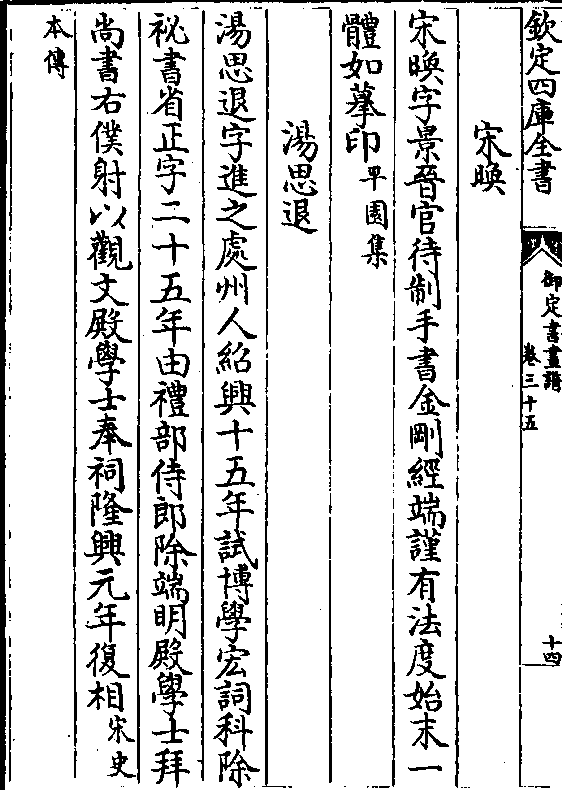 欽定四庫全書
御定書畫譜
卷三十五
十四
宋㬇
宋㬇字景晉官待制手書金剛經端謹有法度始末一
體如摹印平園集
湯思退
湯思退字進之處州人紹興十五年試博學宏詞科除
祕書省正字二十五年由禮部侍郎除端明殿學士拜
尚書右僕射以觀文殿學士奉祠隆興元年復相宋史
本傳